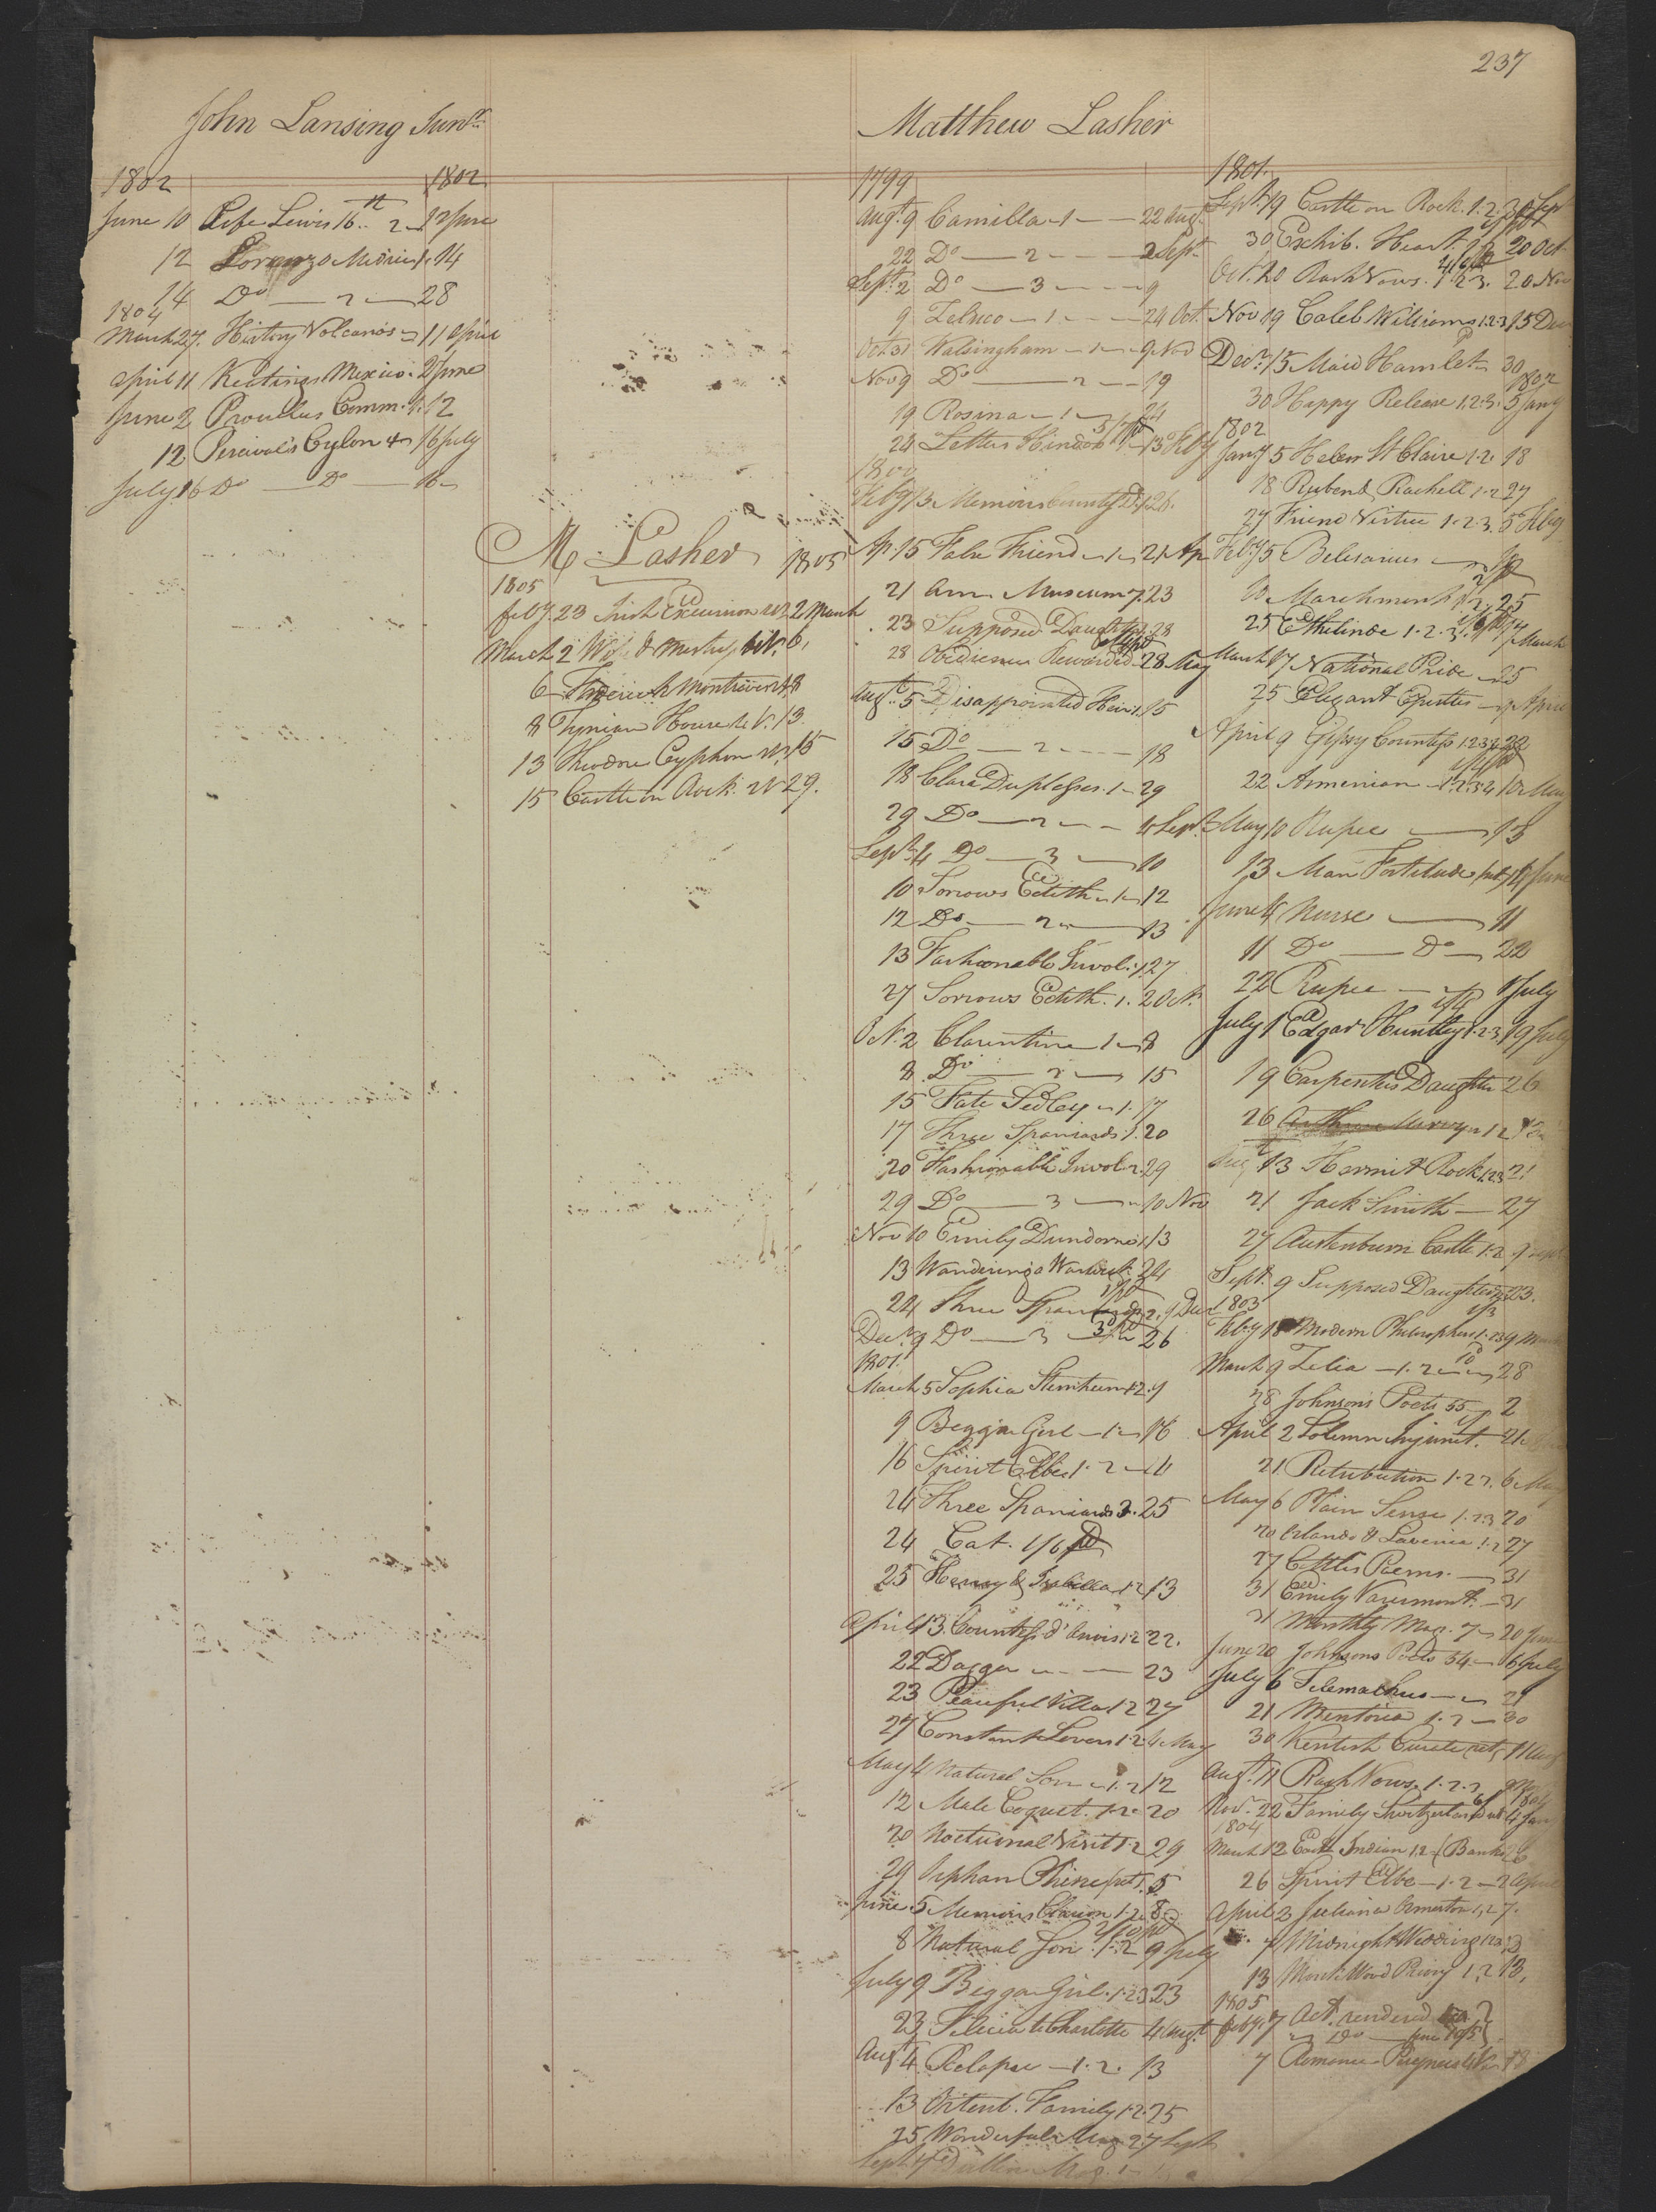 237
John Lansing Junr.
1802 1802
June 10 Life Lewis 16th 2 12 June
12 Lorenzo Medicis 1. 14
14 Do 2 28
1804
March 27. History Volcanos 11 April
April 11 Keatings Mexico 2 June
June 2 Proullus Comm. 1. 12
12 Percival's Cylon 4 16 July
July 16 Do Do 18
M Lasher 1805
1805
feby. 23 Irish Excursion 2 March
March 2 Wife & Mistress 6
6 Frederick Montravers 8
8 Tynian House &c 13
13 Theodore Cyphon 15
15 Castle on Rock 29.
Matthew Lasher
1799
Augt. 9 Camilla 1 22 Augt.
22 Do 2 2 Sept.
Sept. 2 Do 3 9
9 Zeluco 1 24 Oct.
Oct. 31 Walsingham 1 9 Nov
Nov 9 Do 2 19
19 Rosina 1 24
24 Letters Hindoo 13 Feby
1800
Feby 13 Memoirs County D. 1 26.
Ap. 15 False Friend 1 21 Ap
21 Am. Museum 7. 23
23 Supposed Daughter 28
28 Obedience Rewarded 28 May
Augt. 5 Disappointed Heir 1. 15
15 Do 2 18
18 Clara Duplesses. 1 29
29 Do 2 4 Sept.
Sept. 4 Do 3 10
10 Sorrows Edith 1 12
12 Do 2 13
13 Fashionable Invol. 1. 27
27 Sorrows Edith. 1. 2 Oct.
Oct. 2 Clarentine 1 8
8 Do 2 15
15 Fate Sedley 1. 17
17 Three Spaniards 1. 20
20 Fashionable Invol. 2. 29
29 Do 3 10 Nov
Nov 10 Emily Dundorne 1 13
13 Wanderings Warwick. 24
24 Three Spaniards 2. 9 Decr
Decr. 9 Do 3 26
1801.
March 5 Sophia Sternheim 1.2. 9
9 Beggar Girl 1 16
16 Spirit Elbe 1. 2 4
24 Three Spaniards 3. 25
24 Cat. 1/6 pd
25 Henry & Isabella 1.2 13
April 13. Countess d'Anois 1.2 22.
22 Dagger 23
23 Peaceful Villa 1 2 27
27 Constant Lovers 1.2 4 May
May 4 Natural Son 1.2 12
12 Male Coquet. 1.2 20
20 Nocturnal Visit 1.2 29
29 Orphan Rhine pt 1. 5
June 5 Memoirs Clarion 1.2. 8
8 Natural Son 1.2 9 July
July 9 Beggar Girl. 1.2.3 23
23 Felicia to Charlotte 4 Augt.
Augt. 4 Relapse 1. 2. 13
13 Ortenb. Family 1.2. 25
25 Wonderful Mag 2. 7 Sept
Sept 7 Dublin Mag. 1
1801.
Sept. 19 Castle on Rock. 1. 2. 3 30 Sept
30 Exhib. Heart. 1 2 20 Oct
Oct. 20 Rash Vows. 1 2 3. 20 Nov
Nov 19 Caleb Williams 1.2.3 15 Dec
Decr. 15 Maid Hamlet 30
1802
30 Happy Release 1.2.3. 5 Jany
1802
Jany 5 Helen St Claire 1.2. 18
18 Ruben & Rachell 1.2 27
27 Friend Virtue 1.2.3. 5 Feby
Feby 5 Belisarius 10
10 Marchmont 1 2, 25
25 Ethelinde 1. 2. 3. 17 March
March 17 National Pride 25
25 Elegant Epistles 9 April
April 9 Gipsy Countess 1.2.3.4 22
22 Armenian 1.2.3.4 10 May
May 10 Rupee 13
13 Man Fortitude 4 June
June 4 Nurse 11
11 Do Do 22
22 Rupee 1 July
July 1 Edgar Huntley 1.2.3, 19 July
19 Carpenters Daughter 26
26 Arthur Mervyn 1 2
Augt. 13 Hermit Rock 1.2.3 21
21 Jack Smith 27
27 Austenburn Castle 1.2 9 Sept
Sept. 9 Supposed Daughter 23.
1803
Feby 18 Modern Philosophers 1.2.3 9 March
March 9 Zelia 1. 2 28
28 Johnsons Poets 55 2
April 2 Solemn Injunct. 21
21 Retribution 1.2 3. 6 May
May 6 Plain Sense 1.2.3 20
20 Orlando & Lavinia 1.2 27
27 Cottles Poems. 31
31 Emily Varimont. 31
31 Monthly Mag. 7 20 June
June 20 Johnsons Poets 54 6 July
July 6 Telemachus 21
21 Mentoria 1.2 30
30 Kentish Curate 11 Aug
Augt. 11 Rash Vows. 1.2.3
1804
Nov. 22 Family Switzerland 4 Jany
1804
March 12 East Indian 1,2 (Banks 26
26 Spirit Elbe 1.2 2 April
April 2 Juliana Ormeston 1,2 7.
7 Midnight Wedding 1 2 13
13 Monk Wood Priory 1,2 18,
1805
feby. 7 Act. rendered
Do June 1805
7 Romance Pyrenees 4 V. 18